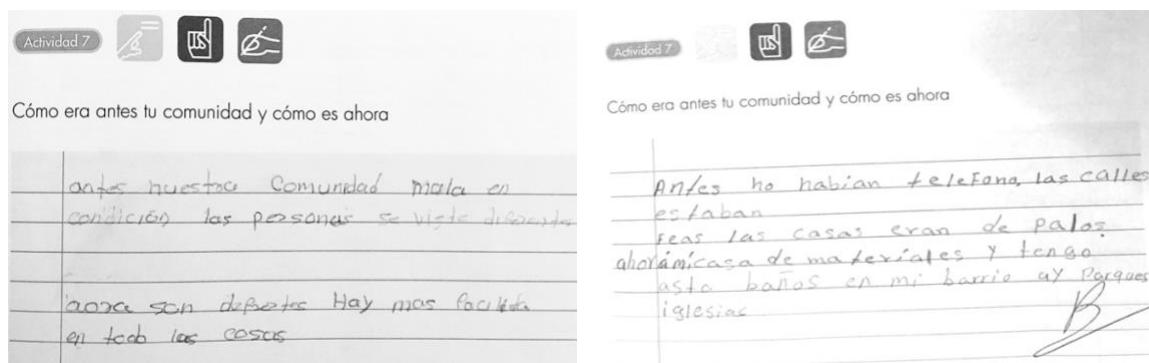 Actividad 7
Cómo era antes tu comunidad y cómo es ahora
antes nuestra Comunidad mala en
condición las personas se viste diferentes
aora son Hay mas
en todo las cosas
Actividad 7
Cómo era antes tu comunidad y cómo es ahora
Antes no habian telefono, las calles
estaban
Feas las casas eran de palos.
ahora micasa de materiales y tengo
asta baños en mi barrio ay Parques
iglesias
B